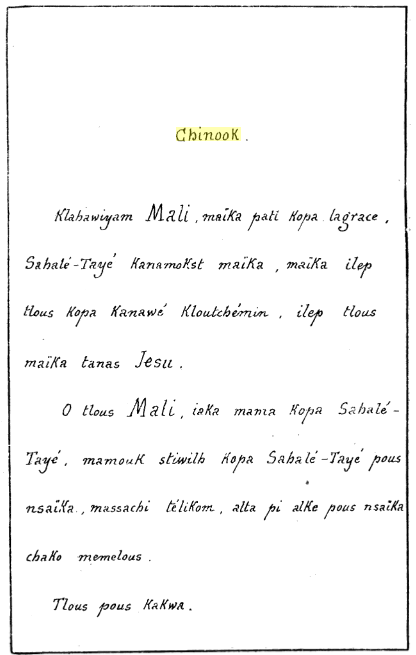 Chinook.
Klahawiyam Mali, maïka patl kopa lagrace,
Sahalé-Tayé kanamokst maïka, maïka ilep
tlous kopa kanawé kloutchémin, ilep tlous
maïka tanas Jesu.
O tlous Mali, iaka mama kopa Sahalé-
Tayé, mamouk stiwilh kopa Sahalé-Tayé pous
nsaïka, massachi télikom, alta pi alke pous nsaïka
chako memelous.
Tlous pous kakwa.